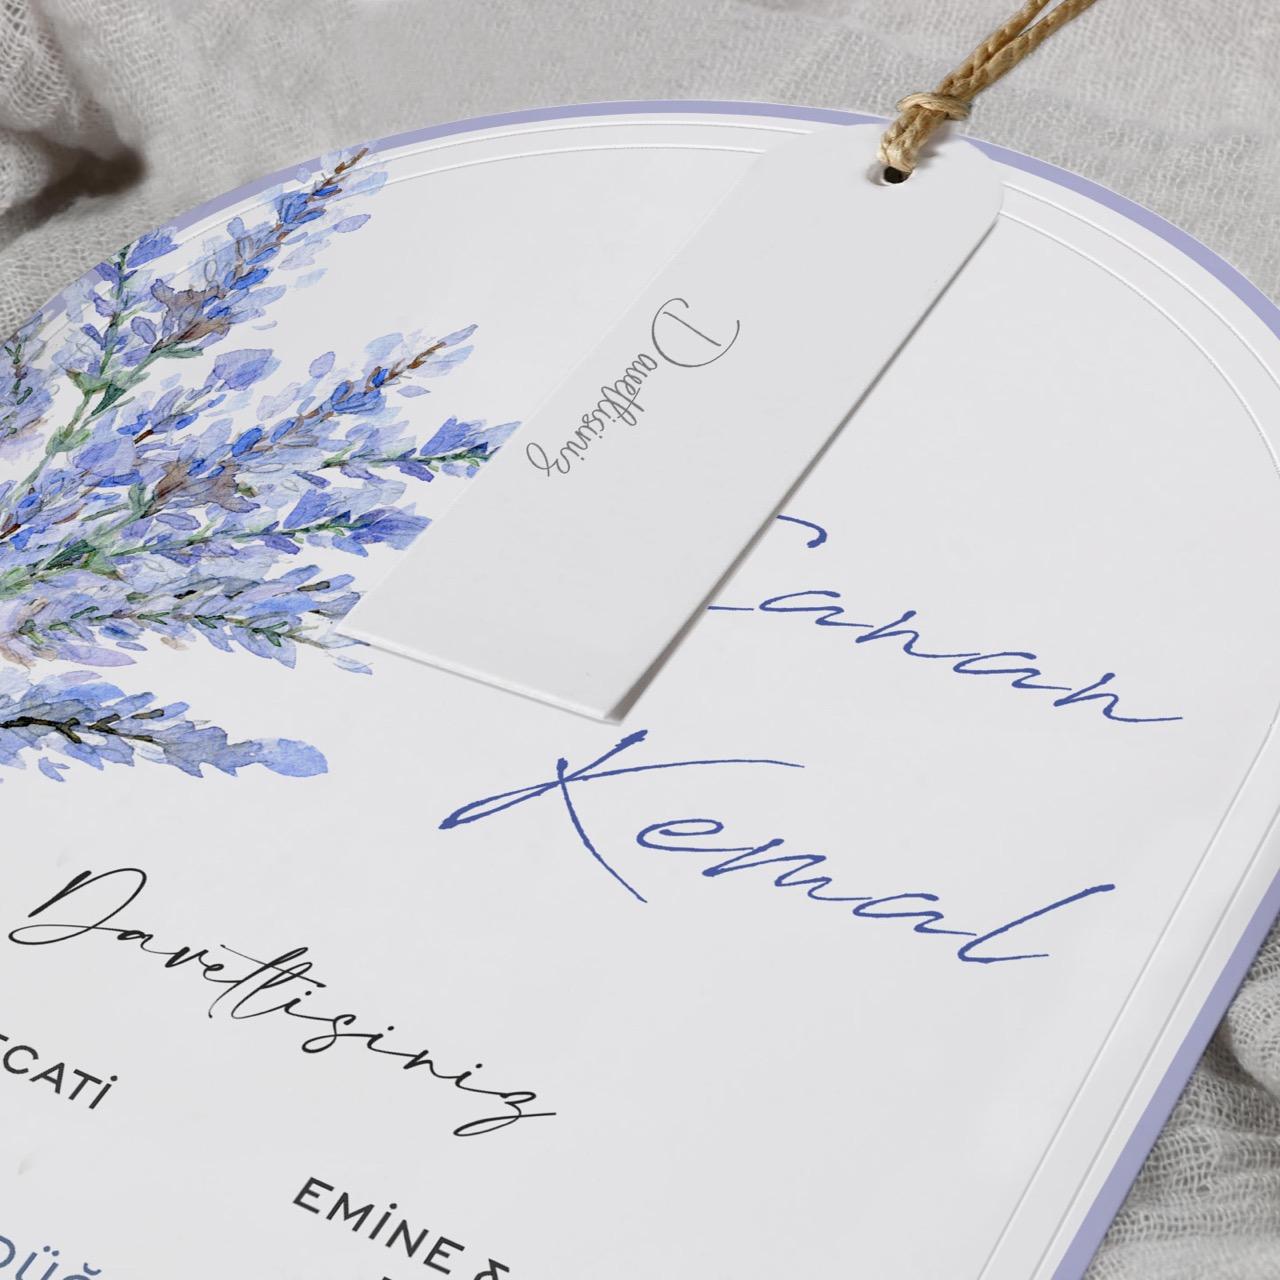 Davetlisiniz
Canan
Kemal
Davetlisiniz
EMİNE &